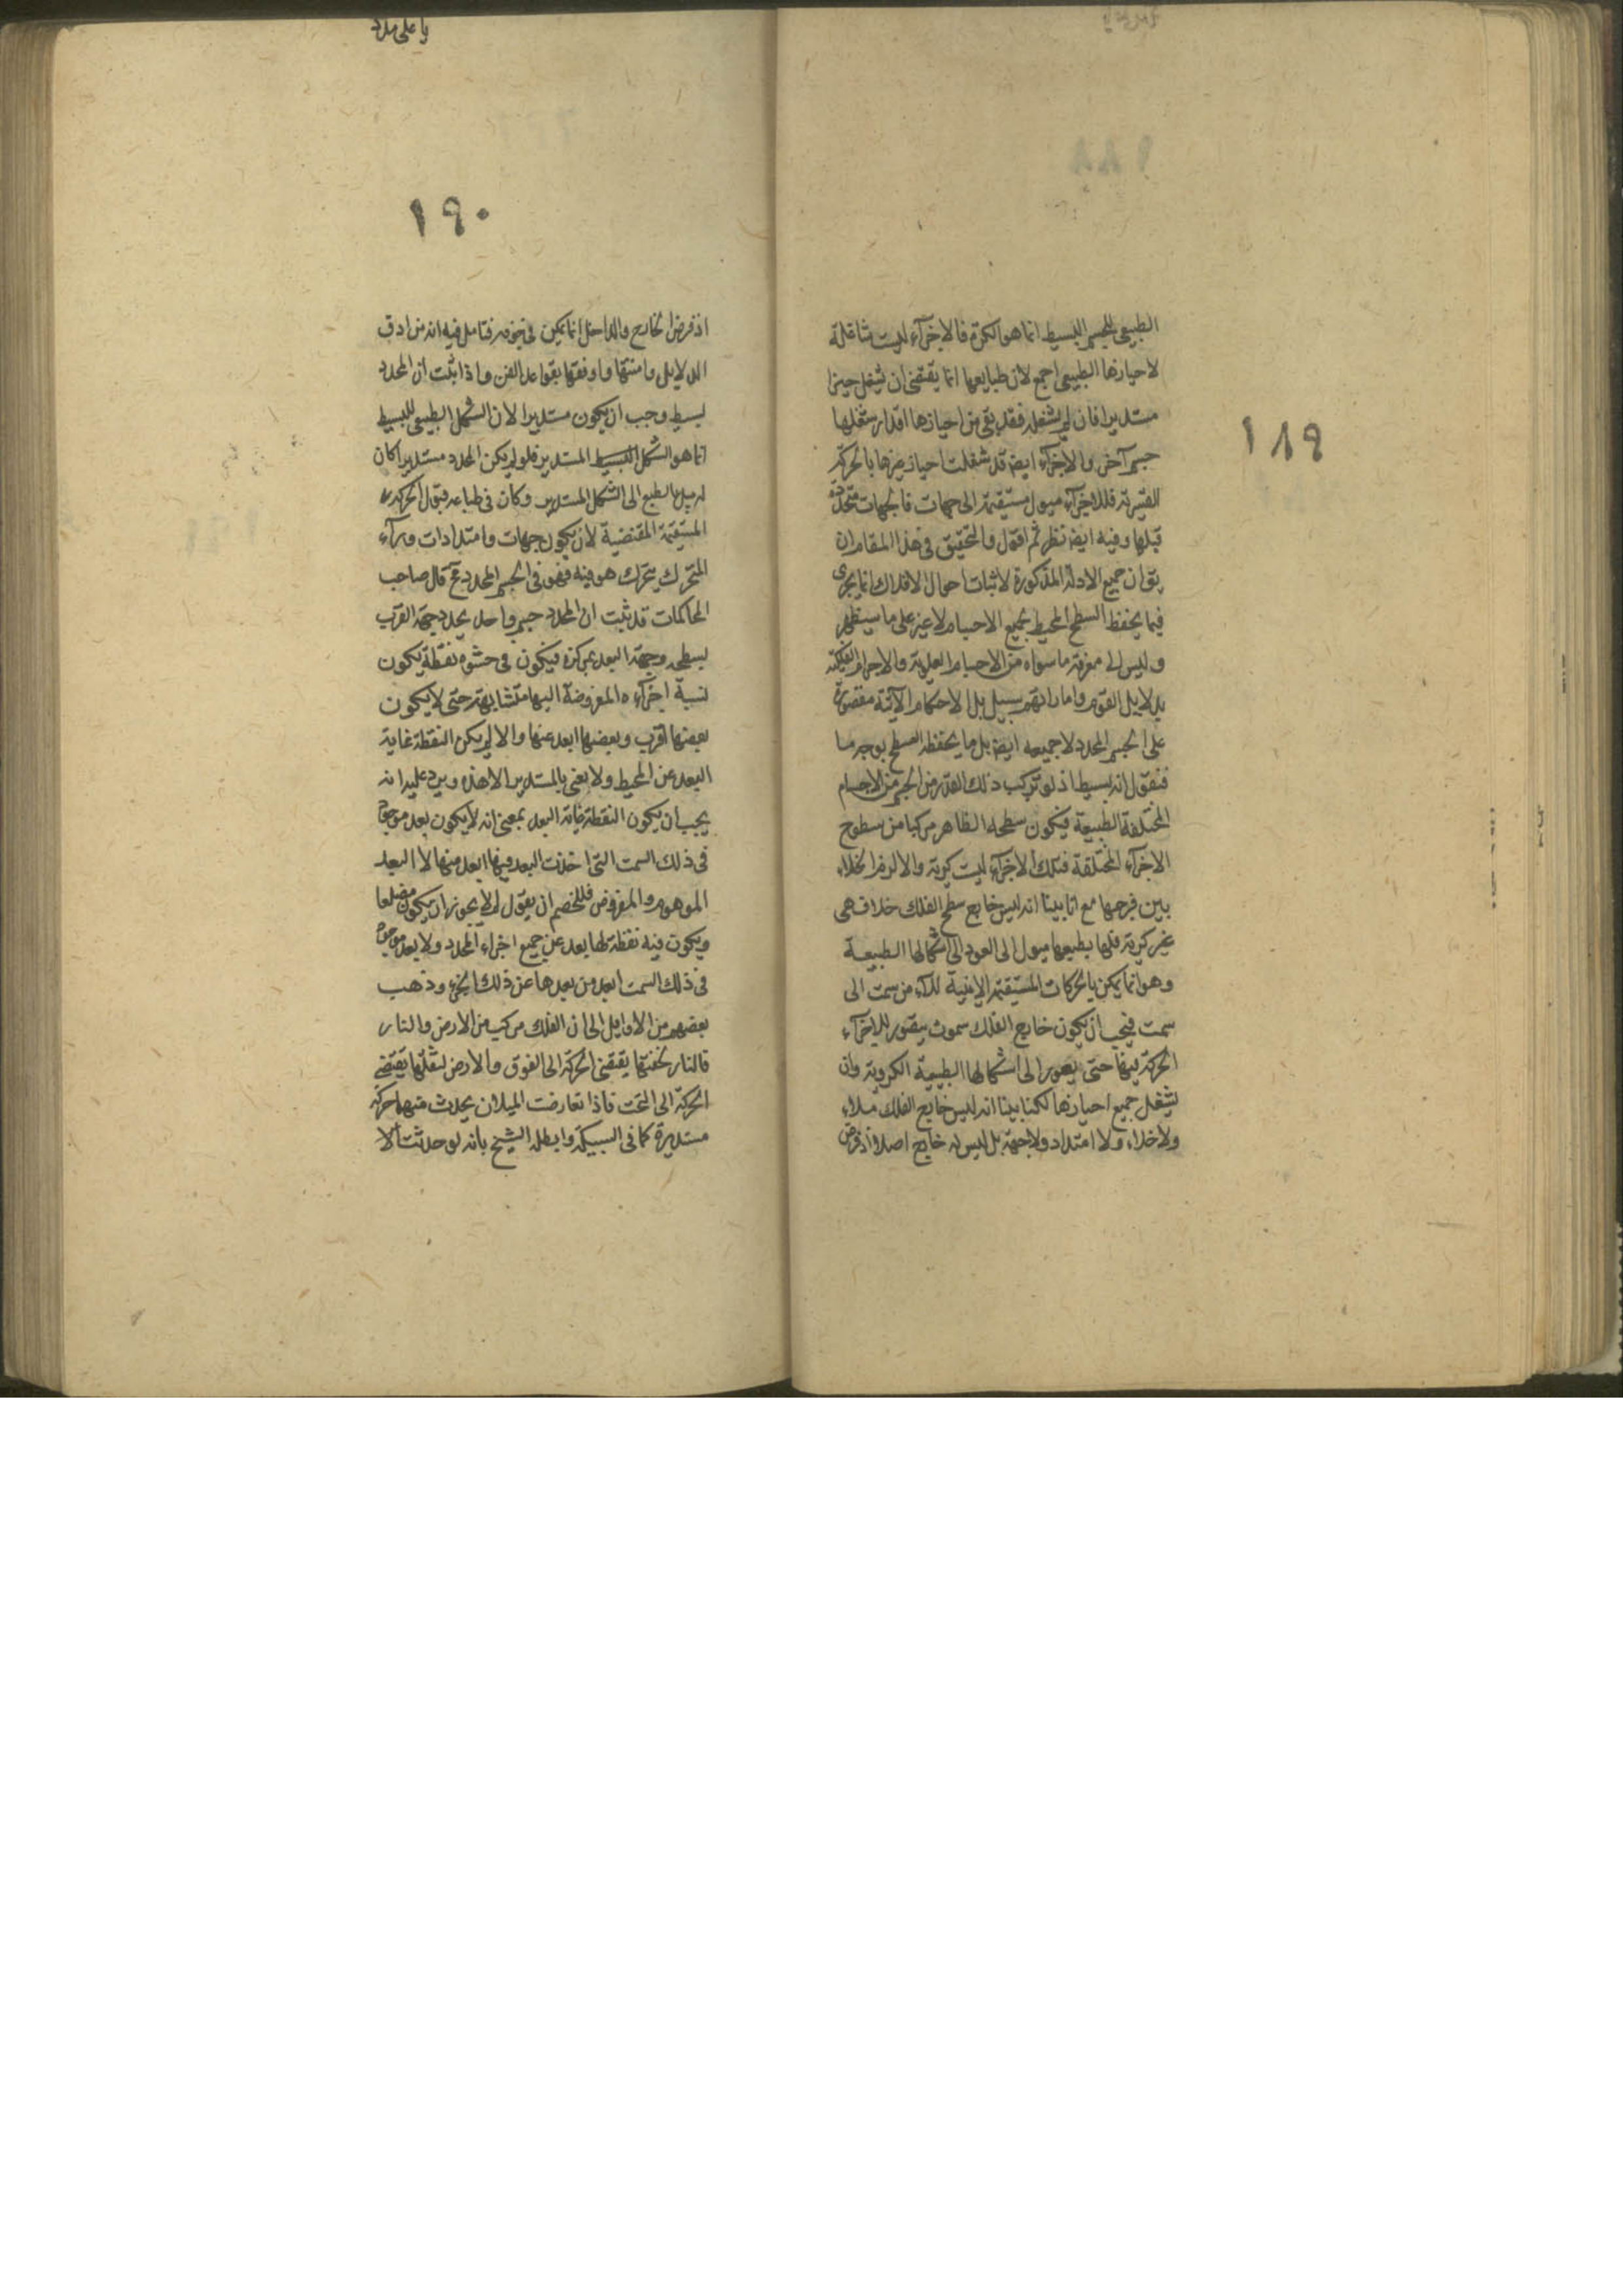 ١٨٩
الطبيعى للجسم البسيط انما هو الكرة فالاجزآء ليست شاغلة
لاحيازها الطبيعى اجمع لان طبايعها انما يقتضى ان يشغل حيزا
مستديرا فان لم يشغله فقد بقى من احيازها اقدار شغلها
جسم آخر والاجزآء ايضا قد شغلت احياز غيرها بالحركة
القسرية فللاجزآء ميول مستقيمة الى جهات فالجهات متحددة
قبلها وفيه ايضا نظر ثم اقول والتحقيق فى هذا المقام ان
يق ان جميع الادلة المذكورة لاثبات احوال الافلاك انما يجرى
فيما يحفظ السطح المحيط بجميع الاجسام لا غير على ما سيظهر
وليس لى معرفة ما سواه من الاجسام العلوية والاجرام الفلكية
بدلايل القوم واماراتهم سبيل بل الاحكام الآتية مقصورة
على الجسم المحدد لا جميعه ايضا بل ما يحفظه السطح بوجه ما
فنقول انه بسيط اذ لو تركب ذلك القدر من الجسم من الاجسام
المختلفة الطبيعة فيكون سطحه الظاهر مركبا من سطوح
الاجزآء المختلفة فتلك الاجزآء ليست كرية والا لزم الخلاء
بين فرجها مع انا بينا انه ليس خارج سطح الفلك خلا فهى
غير كرية فلها بطبعها ميول الى العود الى اشكالها الطبيعة
وهو انما يمكن بالحركات المستقيمة الاينية من سمت الى
سمت فيجب ان يكون خارج الفلك سموت يتصور للاجزآء
الحركة فيها حتى يعود الى اشكالها الطبيعة الكروية وان
يشغل جميع احيازها لكنا بينا انه ليس خارج الفلك ملاء
ولا خلاء ولا امتداد ولا جهة بل ليس له خارج اصلا اذ فرض
يا على مدد
١٩٠
اذ فرض الخارج والداخل انما يمكن فى فتامل فيه انه من ادق
الدلايل وامتنها واوفقها بقواعد الفن واذا ثبت ان المحدد
بسيط وجب ان يكون مستديرا لان الشكل الطبيعى للبسيط
انما هو الشكل البسيط المستدير فلو لم يكن المحدد مستديرا كان
له ميل بالطبع الى الشكل المستدير وكان فى طباعه قبول الحركة
المستقيمة المقتضية لان يكون جهات وامتدادات ورآء
المتحرك يتحرك هو فيه فهو فى الجسم المحدد مح قال صاحب
المحاكمات قد ثبت ان المحدد جسم واحد يحدد جهة القرب
بسطحه وجهة البعد بمركزه فيكون فى حشوه نقطة يكون
نسبة اجزآءه المفروضة اليها متشابهة حتى لا يكون
بعضها اقرب وبعضها ابعد عنها والا لم يكن النقطة غاية
البعد عن المحيط ولا نعنى بالمستدير الا هذه ويرد عليه انه
يجب ان يكون النقطة غاية البعد بمعنى انه لا يكون بعد موجود
فى ذلك السمت التى اخذت البعد فيها ابعد منها لا البعد
الموهوم والمفروض فللخصم ان يقول لم لا يجوز ان يكون مضلعا
ويكون فيه نقطة لها بعد عن جميع اجزاء المحدد ولا بعد موجود
فى ذلك السمت ابعد من بعدها عن ذلك الجزء وذهب
بعضهم من الاوايل الى ان الفلك مركب من الارض والنار
فالنار لخفتها يقتضى الحركة الى الفوق والارض لثقلها يقتضى
الحركة الى التحت فاذا تعارضت الميلان يحدث منهما حركة
مستديرة كما فى السبيكة وابطله الشيخ بانه لو حدثت الا